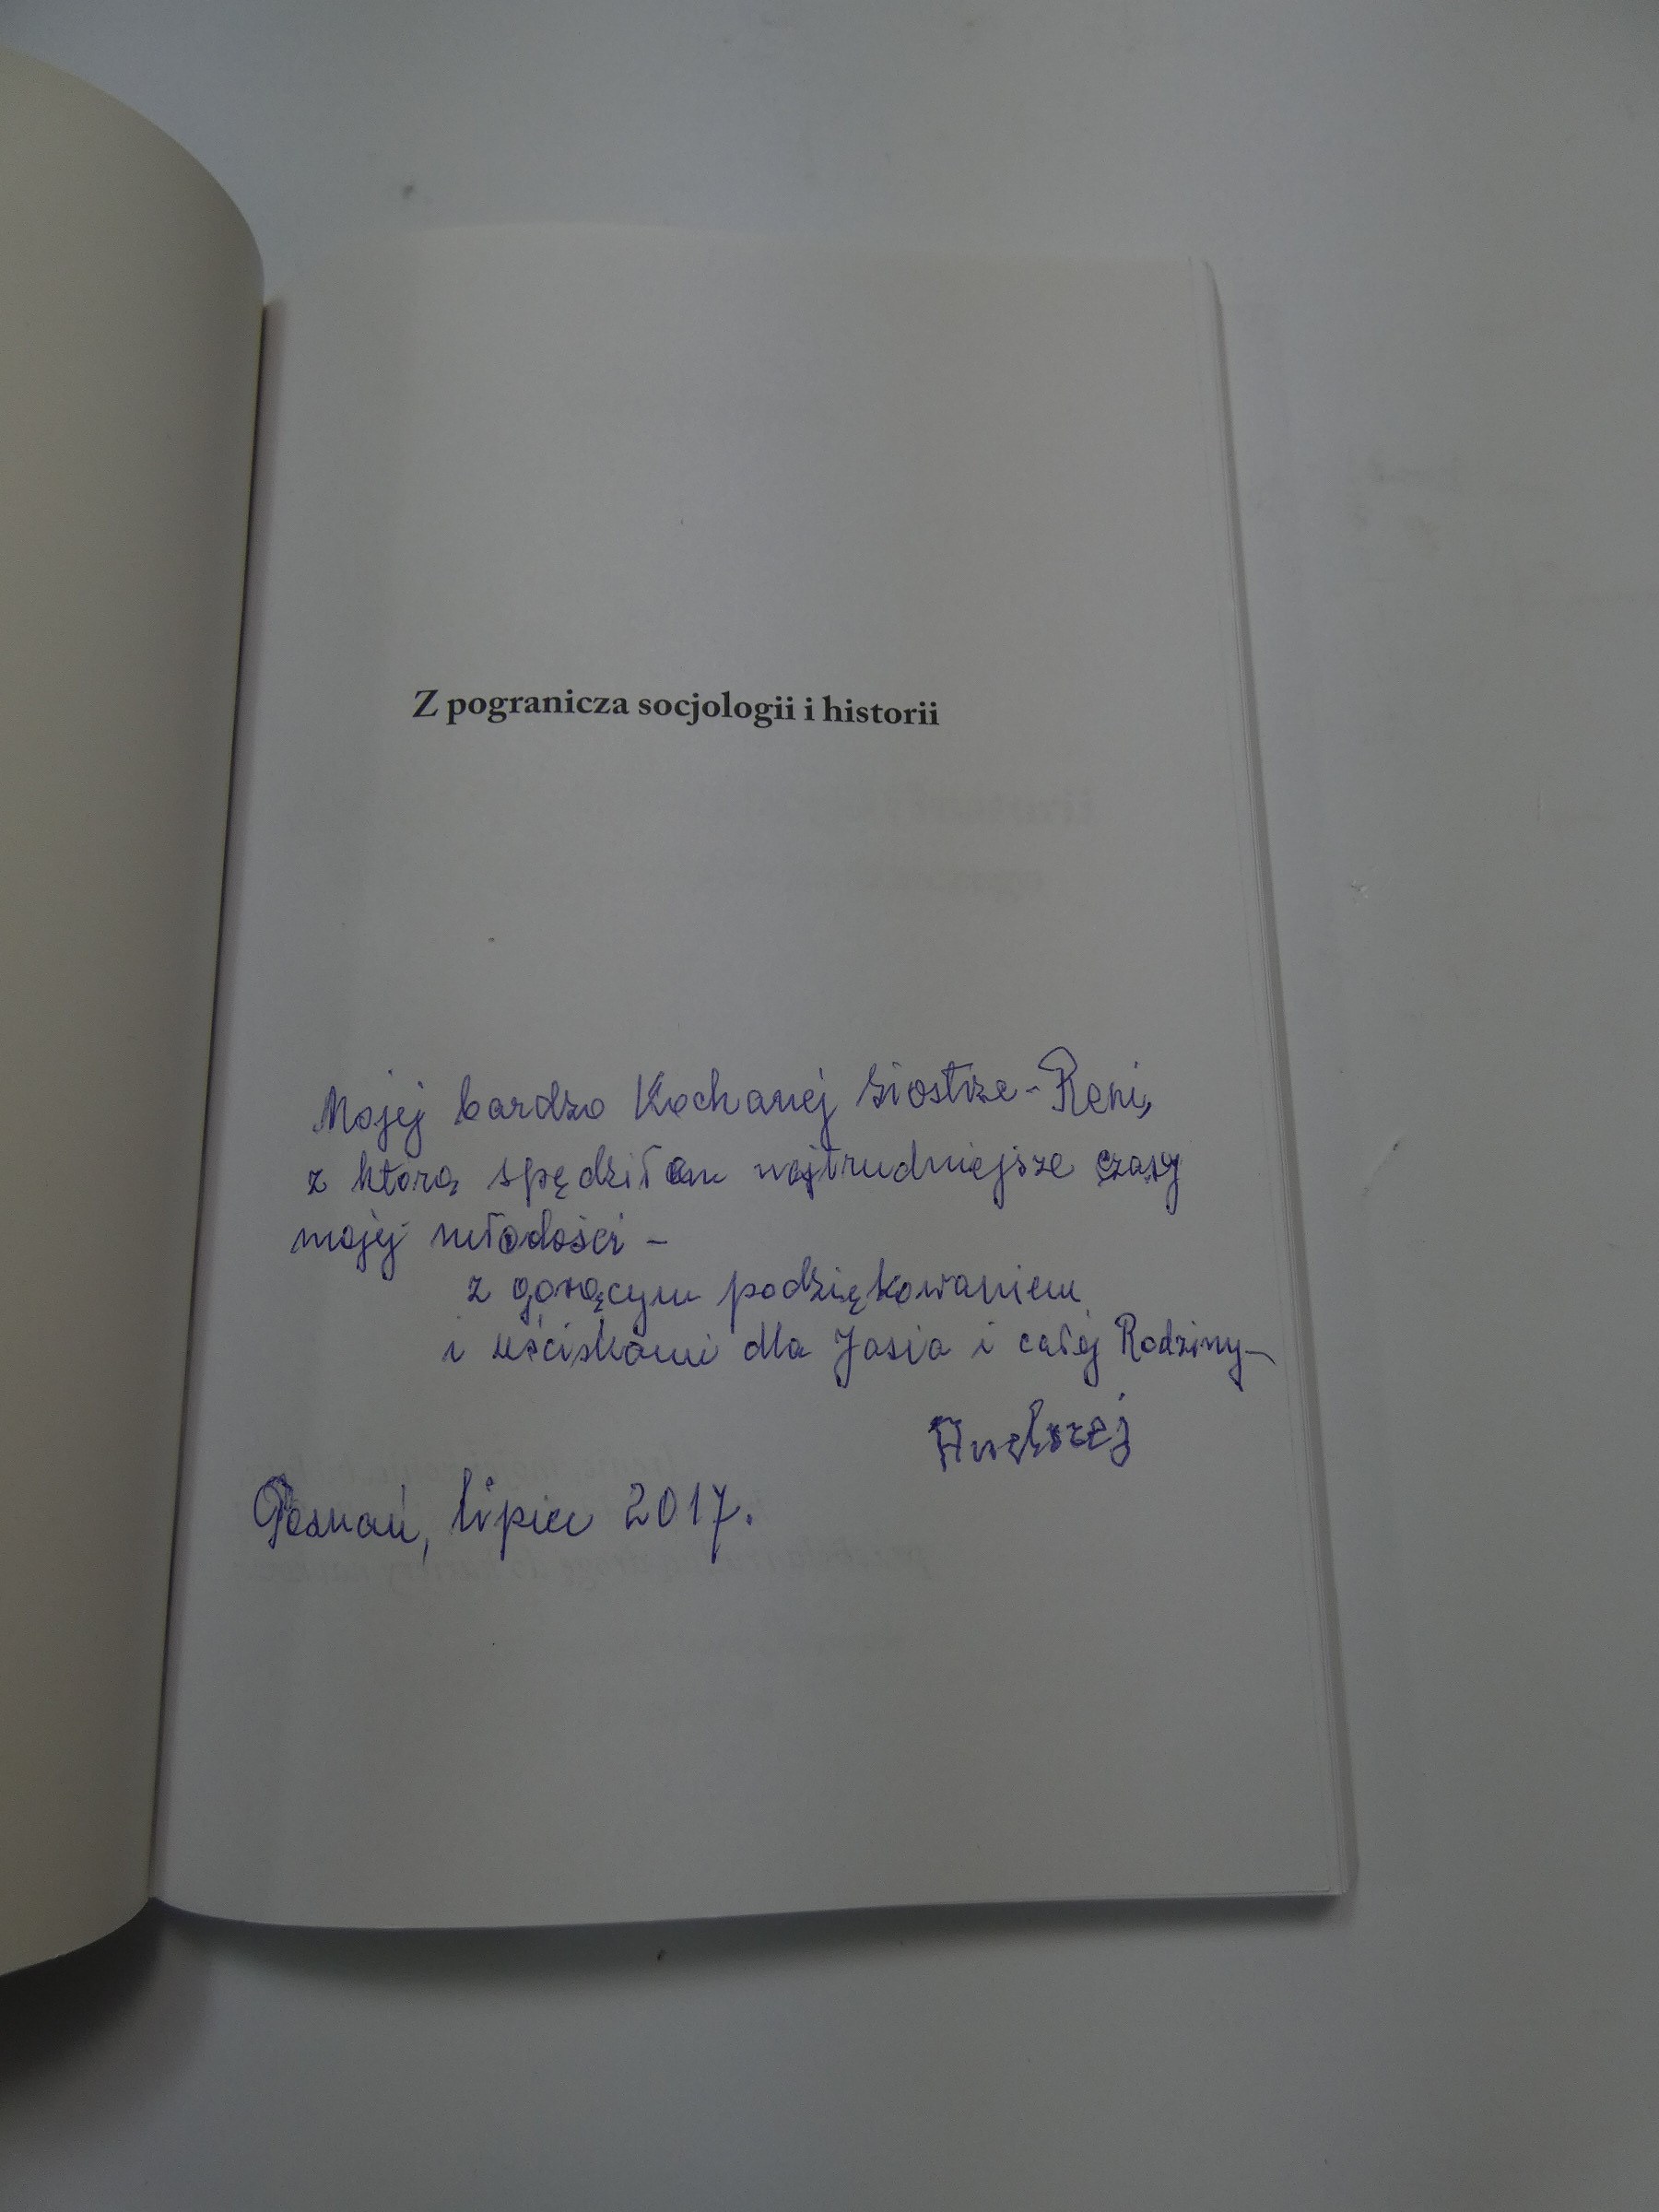 Z pogranicza socjologii i historii
Mojej bardzo Kochanej siostrze - Reni,
z którą spędziłem najtrudniejsze czasy
mojej młodości -
z gorącym podziękowaniem
i uściskami dla Jasia i całej Rodziny -
Andrzej
Poznań, lipiec 2017.